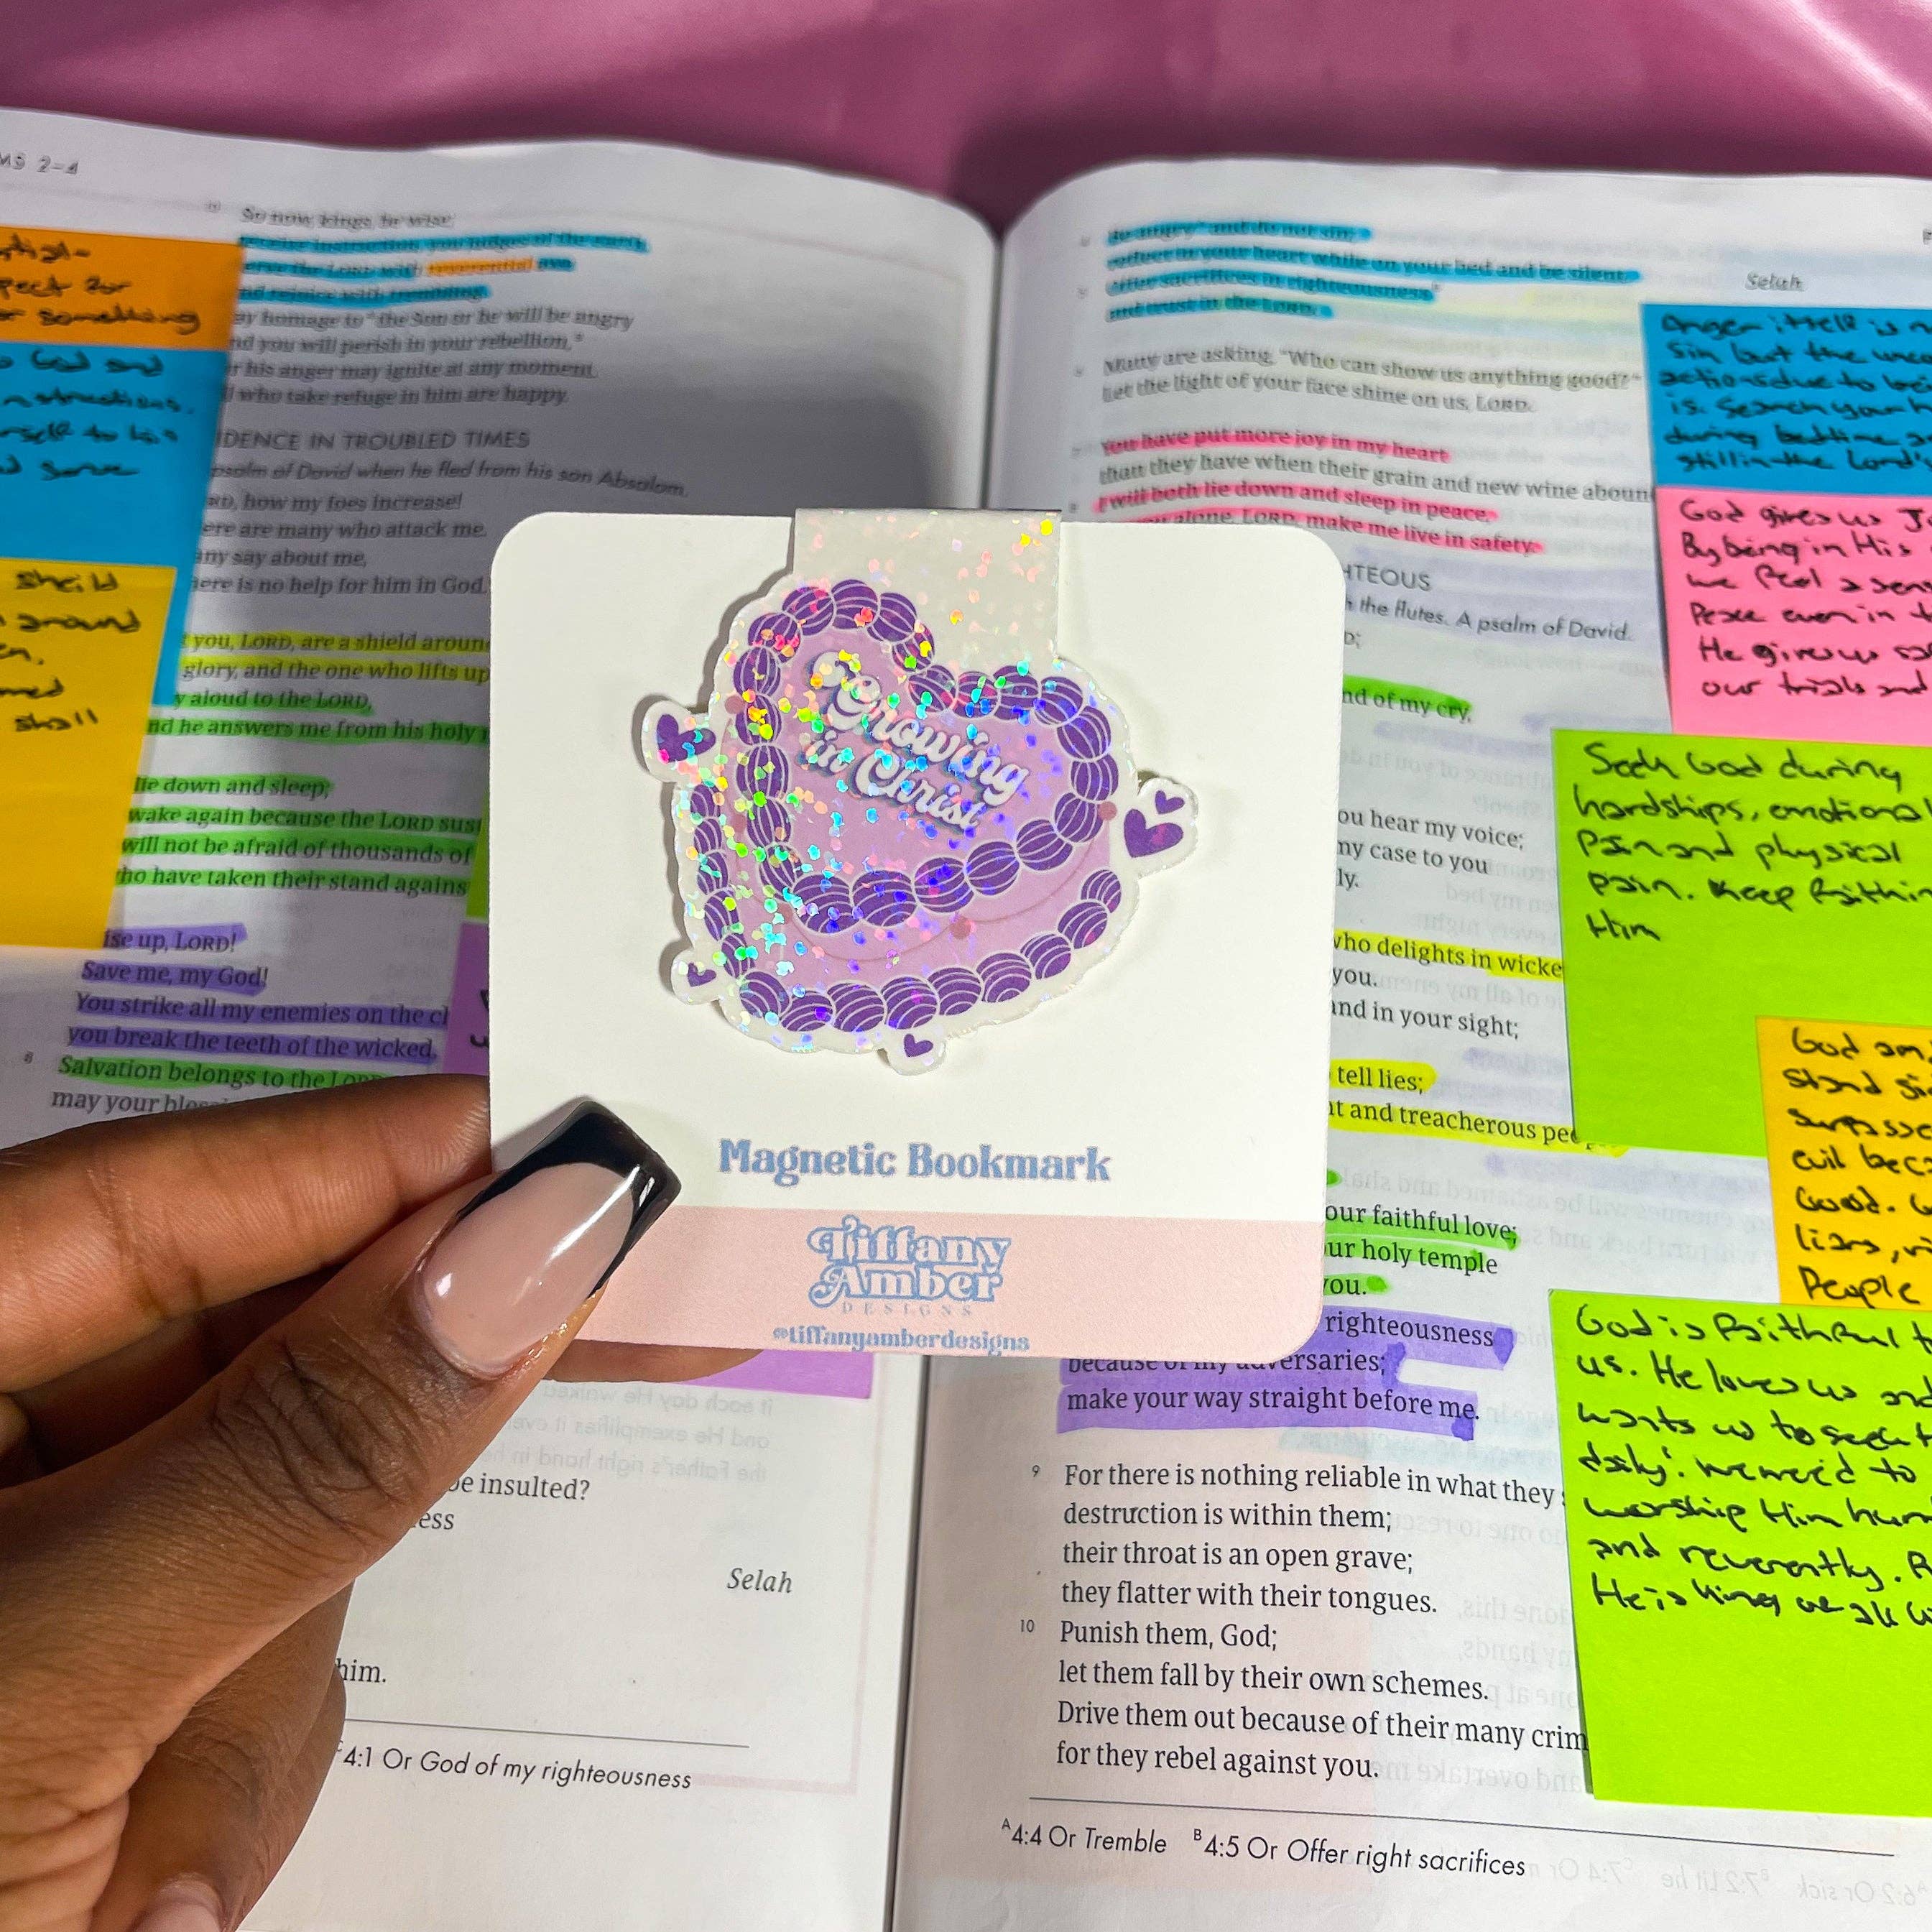 MS 2–4
So now, kings, be wise;
receive instruction, you judges of the earth.
erve the LORD with reverential awe
nd rejoice with trembling.
ay homage to the Son or he will be angry
nd you will perish in your rebellion,
r his anger may ignite at any moment.
l who take refuge in him are happy.
IDENCE IN TROUBLED TIMES
psalm of David when he fled from his son Absalom.
RD, how my foes increase!
ere are many who attack me.
any say about me,
here is no help for him in God."
you, LORD, are a shield aroun
glory, and the one who lifts up
y aloud to the LORD,
nd he answers me from his holy
lie down and sleep;
wake again because the LORD sus
will not be afraid of thousands of
ho have taken their stand agains
ise up, LORD!
Save me, my God!
You strike all my enemies on the c
you break the teeth of the wicked.
8 Salvation belongs to the LORD
may your
be insulted?
ess
Selah
him.
4:1 Or God of my righteousness
pect for
or something
God and
nstructions.
rself to his
d serve
sheild
around
en.
med
shall
Growing
in Christ
Magnetic Bookmark
Tiffany
Amber
DESIGNS
@tiffanyamberdesigns
Be angry and do not sin;
reflect in your heart while on your bed and be silent.
Selah
Offer sacrifices in righteousness
and trust in the LORD.
Many are asking, "Who can show us anything good?"
Let the light of your face shine on us, LORD.
You have put more joy in my heart
than they have when their grain and new wine aboun
I will both lie down and sleep in peace,
you alone, LORD, make me live in safety.
HTEOUS
h the flutes. A psalm of David.
D;
nd of my cry,
ou hear my voice;
my case to you
ly.
who delights in wicke
you.
and in your sight;
tell lies;
nt and treacherous peo
our faithful love;
ur holy temple
you.
righteousness
because of my adversaries;
make your way straight before me.
9 For there is nothing reliable in what they
destruction is within them;
their throat is an open grave;
they flatter with their tongues.
10 Punish them, God;
let them fall by their own schemes.
Drive them out because of their many crim
for they rebel against you.
A4:4 Or Tremble B4:5 Or Offer right sacrifices
Anger itself is n
Sin but the
actions due to
is. Search your h
during bedtime
still in the Lord's
God gives us J
By being in His
we feel a sen
Peace even in t
He gives us
our trials and
Seek God during
hardships, emotiona
Pain and physical
pain. Keep faith in
Him
God
stand
surpasse
evil beca
Good.
liars,
People
God is faithful t
us. He loves us and
wants us to seek
daily. we need to
worship Him hum
and reverently.
He is King